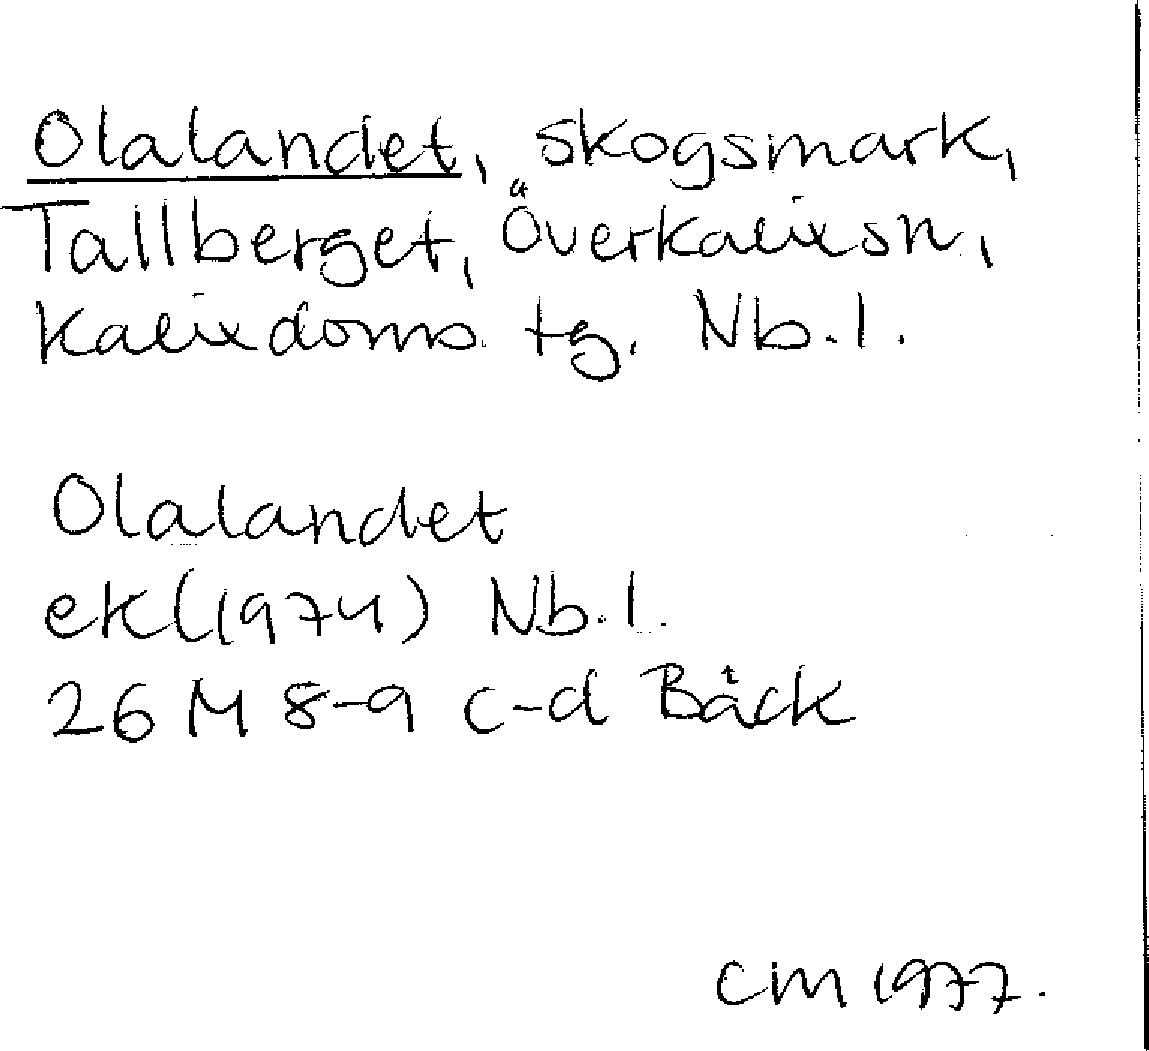 Olalandet, skogsmark,
Tallberget, Överkalix sn,
Kalix doms. tg. Nb. l.
Olalandet
ek (1974) Nb. l.
26 M 8-9 c-d Bäck
CM 1977.